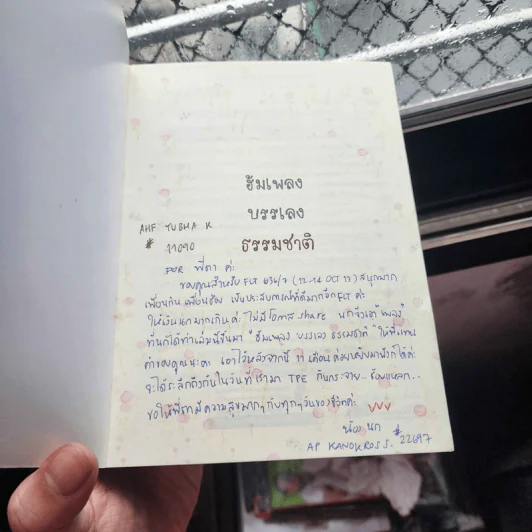 ฮัมเพลง
บรรเลง
ธรรมชาติ
AHF YUBHA K
# 11090
FOR พี่ตา ค่ะ
ขอบคุณสำหรับ FLT 634/7 (12-14 OCT 17) สนุกมาก
เพื่อนกิน เพื่อนช้อป เป็นประสบการณ์ที่ดีมากอีก FLT ค่ะ
ให้เงินนกมาเกินค่ะ ไม่มีโอกาส share นกจึงเอา "เพลง"
ที่นกได้ทำเล่มนี้ขึ้นมา "ฮัมเพลง บรรเลง ธรรมชาติ" ให้พี่แทน
คำขอบคุณนะคะ เอาไว้หลังจากนี้ 11 เดือน ค่อยหยิบมาฟังก็ได้ค่ะ
จะได้ระลึกถึงกันในวันที่เรามา TPE กันกระจาย.. ร้อยแหลก..
ขอให้พี่ตามีความสุขมากๆ กับทุกๆ วันของชีวิตค่ะ
น้อง นก
AP KANOKROS S. # 22697